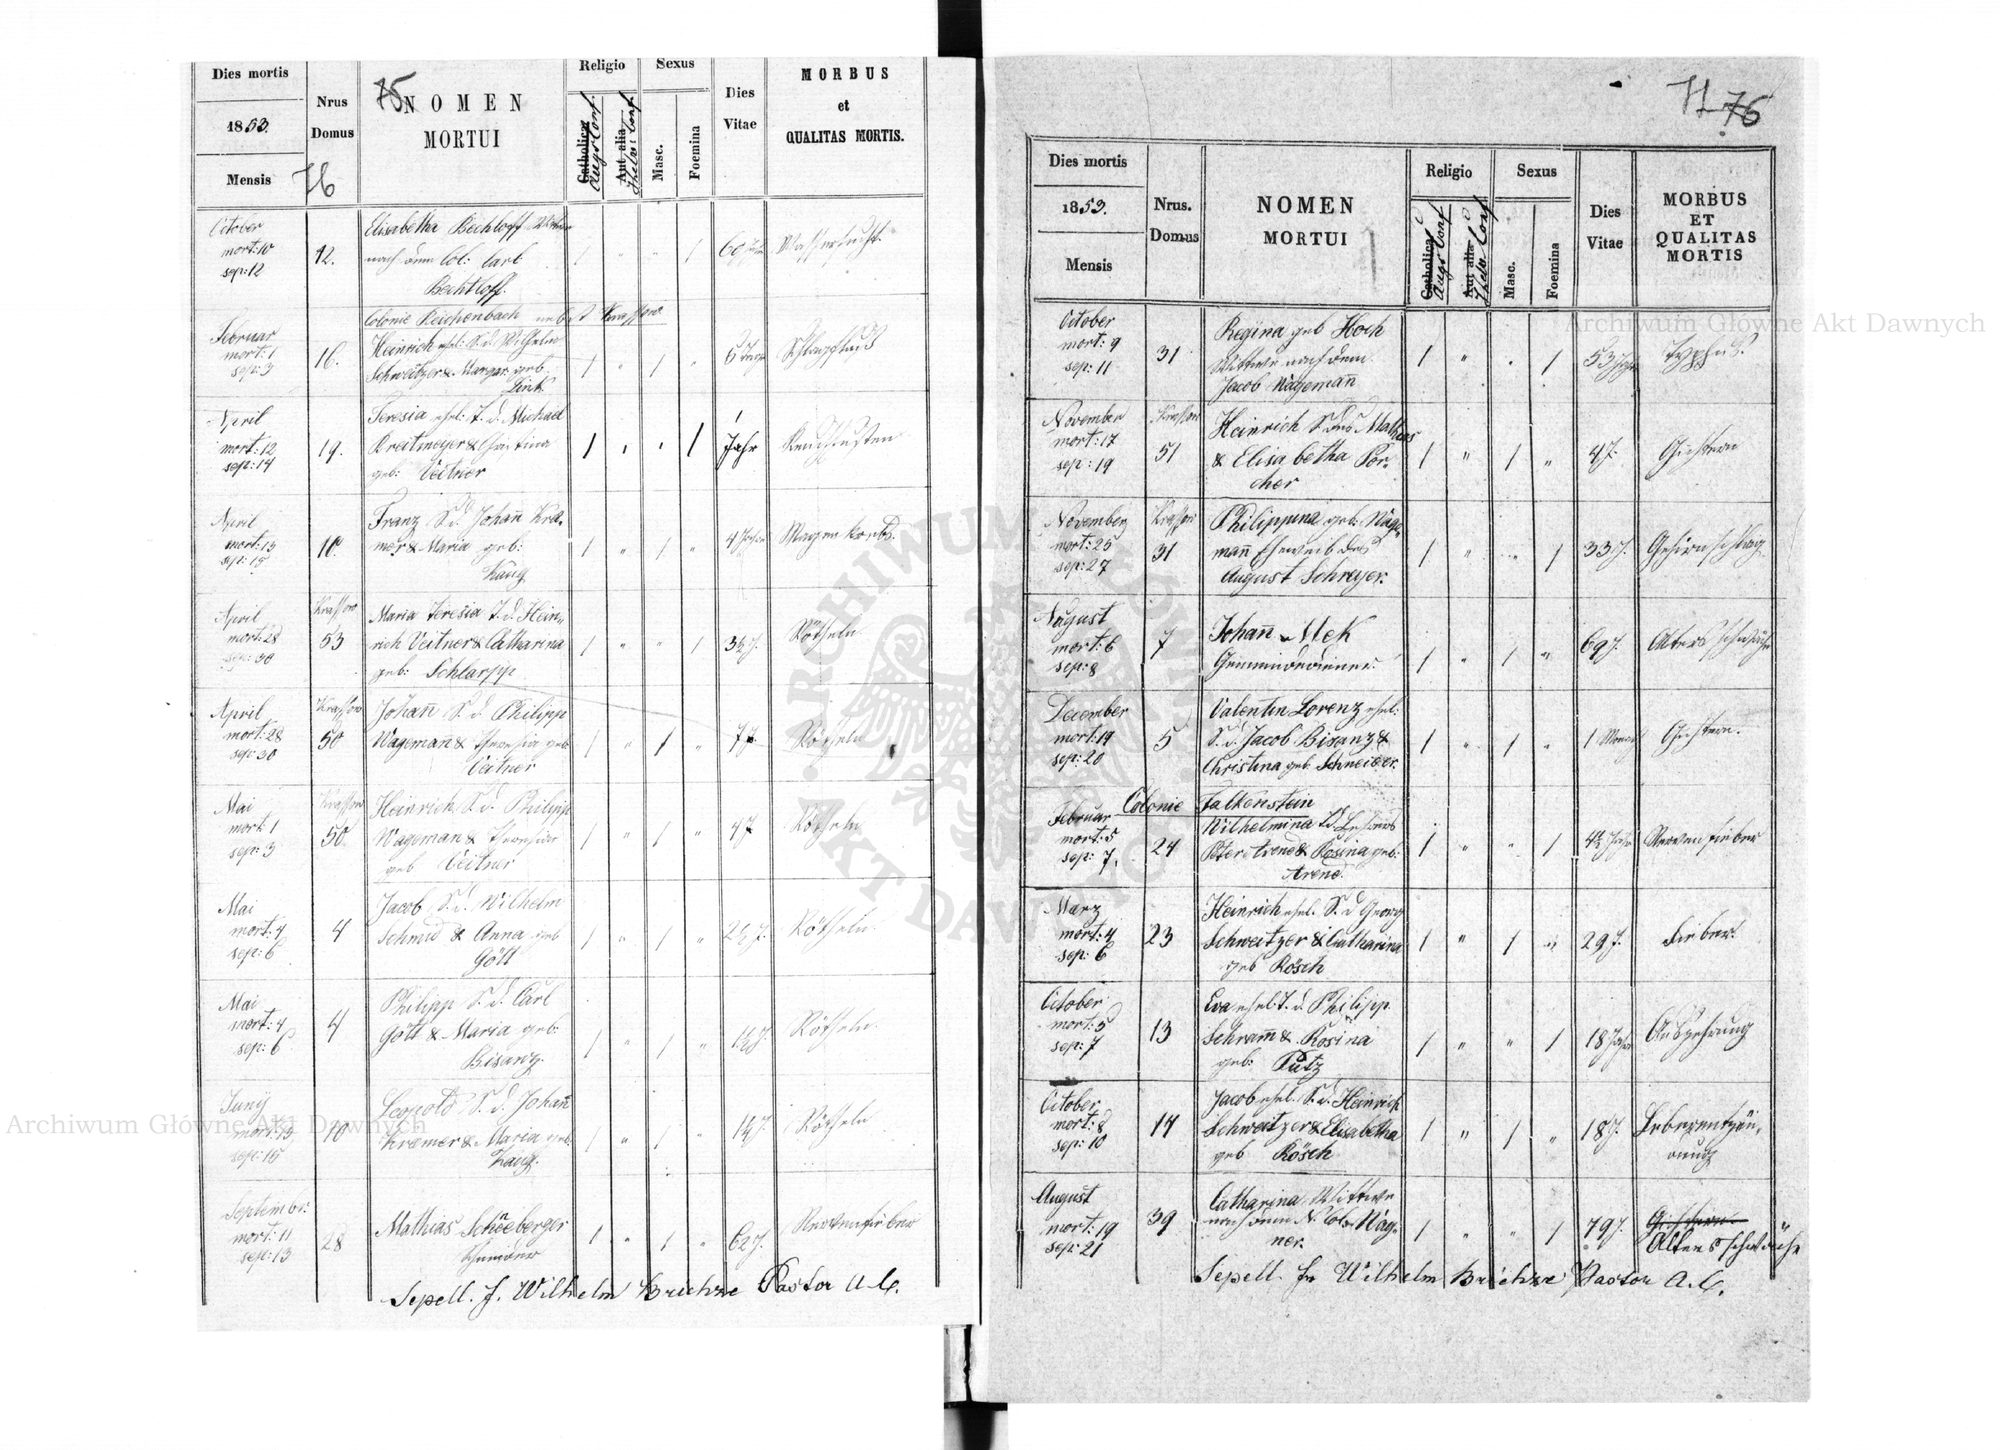 Dies mortis
1853.
Mensis
Nrus
Domus
76
75
NOMEN
MORTUI
Religio
Catholica
Augs Conf.
Aut alia
Helv: Conf.
Sexus
Masc.
Foemina
Dies
Vitae
MORBUS
et
QUALITAS MORTIS.
October
mort: 10
sep: 12
12.
Elisabetha Bechtloff Wittwe
nach dem Col: Carl
Bechtloff.
1 " " 1
60 Jahr
Wassersucht.
Colonie Reichenbach nebst Krassow
Februar
mort: 1
sep: 3
16.
Heinrich ehel: S. d. Wilhelm
Schweitzer & Margar: geb.
Link
1 " 1 "
6 Tage
Schlagfluß
April
mort: 12
sep: 14
19.
Teresia ehel: T. d. Michael
Kreitmeyer & Christina
geb: Veitner
1 " " 1
1
Jahr
Keuchhusten
April
mort: 13
sep: 15
10
Franz S. d. Johañ Kra-
mer & Maria geb:
Kaug
1 " 1 "
4 Jahre
April
mort: 28
sep: 30
Krassow
53
Maria Teresia T. d. Hein-
rich Veitner & Catharina
geb: Schlarpp
1 " " 1
3½ J.
Rötheln
April
mort: 28
sep: 30
Krassow
50
Johañ S. d. Philipp
Wageman & Theresia geb:
Veitner
1 " 1 "
7 J.
Rötheln
Mai
mort 1
sep: 3
Krassow
50.
Heinrich S. d. Philipp
Wageman & Theresia
geb Veitner
1 " 1 "
4 J.
Rötheln
Mai
mort: 4
sep: 6
4
Jacob S. d. Wilhelm
Schmid & Anna geb
Gött
1 " 1 "
2½ J.
Rötheln.
Mai
mort: 4
sep: 6
4
Philipp S. d. Carl
Gött & Maria geb:
Bisanz.
1 " 1 "
1½ J.
Rötheln.
Junij
mort: 13
sep: 15
10
Leopold S. d. Johañ
Kremer & Maria geb
Kaug.
1 " 1 "
Rötheln
September:
mort: 11
sep: 13
28
Mathias Schneeberger
1 " 1 "
62 J.
Nervenfieber
Sepell. Fr. Wilhelm Pastor A. C.
76
Dies mortis
1853.
Mensis
Nrus.
Domus
NOMEN
MORTUI
Religio
Catholica
Augs Conf
Aut alia
Helv Conf
Sexus
Masc.
Foemina
Dies
Vitae
MORBUS
ET
QUALITAS
MORTIS
October
mort: 9
sep: 11
31
Regina geb Hoch
Wittwe nach dem
Jacob Wägemañ
1 " " 1
53 Jahr
Typhus.
November
mort: 17
sep: 19
Krassow
51
Heinrich S. des Mathias
& Elisabetha Por-
cher
1 " 1 "
4 J.
Gichtern
November
mort: 25
sep: 27
Krassow
31
Philippina geb: Wäge-
mañ Eheweib des
August Schreyer.
1 " " 1
33 J.
Gehirnschlag
August
mort: 6
sep: 8
7
Johañ Mek
Gemeindediener
1 " 1 "
69 J.
Altersschwäche
December
mort: 19
sep: 20
5
Valentin Lorenz ehel:
S. d. Jacob Bisanz &
Christina geb: Schneider.
1 " 1 "
1 Monat
Gichtern.
Colonie Falkenstein
Februar
mort: 5
sep: 7.
24
Wilhelmina T. d. Lehrers
Peter Arend & Rosina geb:
Arend.
1 " " 1
4½ Jahr
Nervenfieber
März
mort: 4
sep: 6
23
Heinrich ehel. S. d Georg
Schweitzer & Catharina
geb Rösch
1 " 1 "
29 J.
Fieber.
October
mort: 5
sep: 7
13
Eva ehel. T. d. Philipp
Schram̃ & Rosina
geb: Putz
1 " " 1
18 Jahr
Auszehrung
October
mort: 8
sep: 10
14
Jacob ehel. S. d. Heinrich
Schweitzer & Elisabetha
geb Rösch
1 " 1 "
18 J.
Leberentzün-
dung
August
mort: 19
sep: 21
39
Catharina Wittwe
nach dem N. Col. Wag-
ner.
1 " " 1
79 J.
Gichtern
Altersschwäche
Sepell. Fr Wilhelm Pastor A. C.
Archiwum Główne Akt Dawnych
Archiwum Główne Akt Dawnych
ARCHIWUM GŁÓWNE AKT DAWNYCH